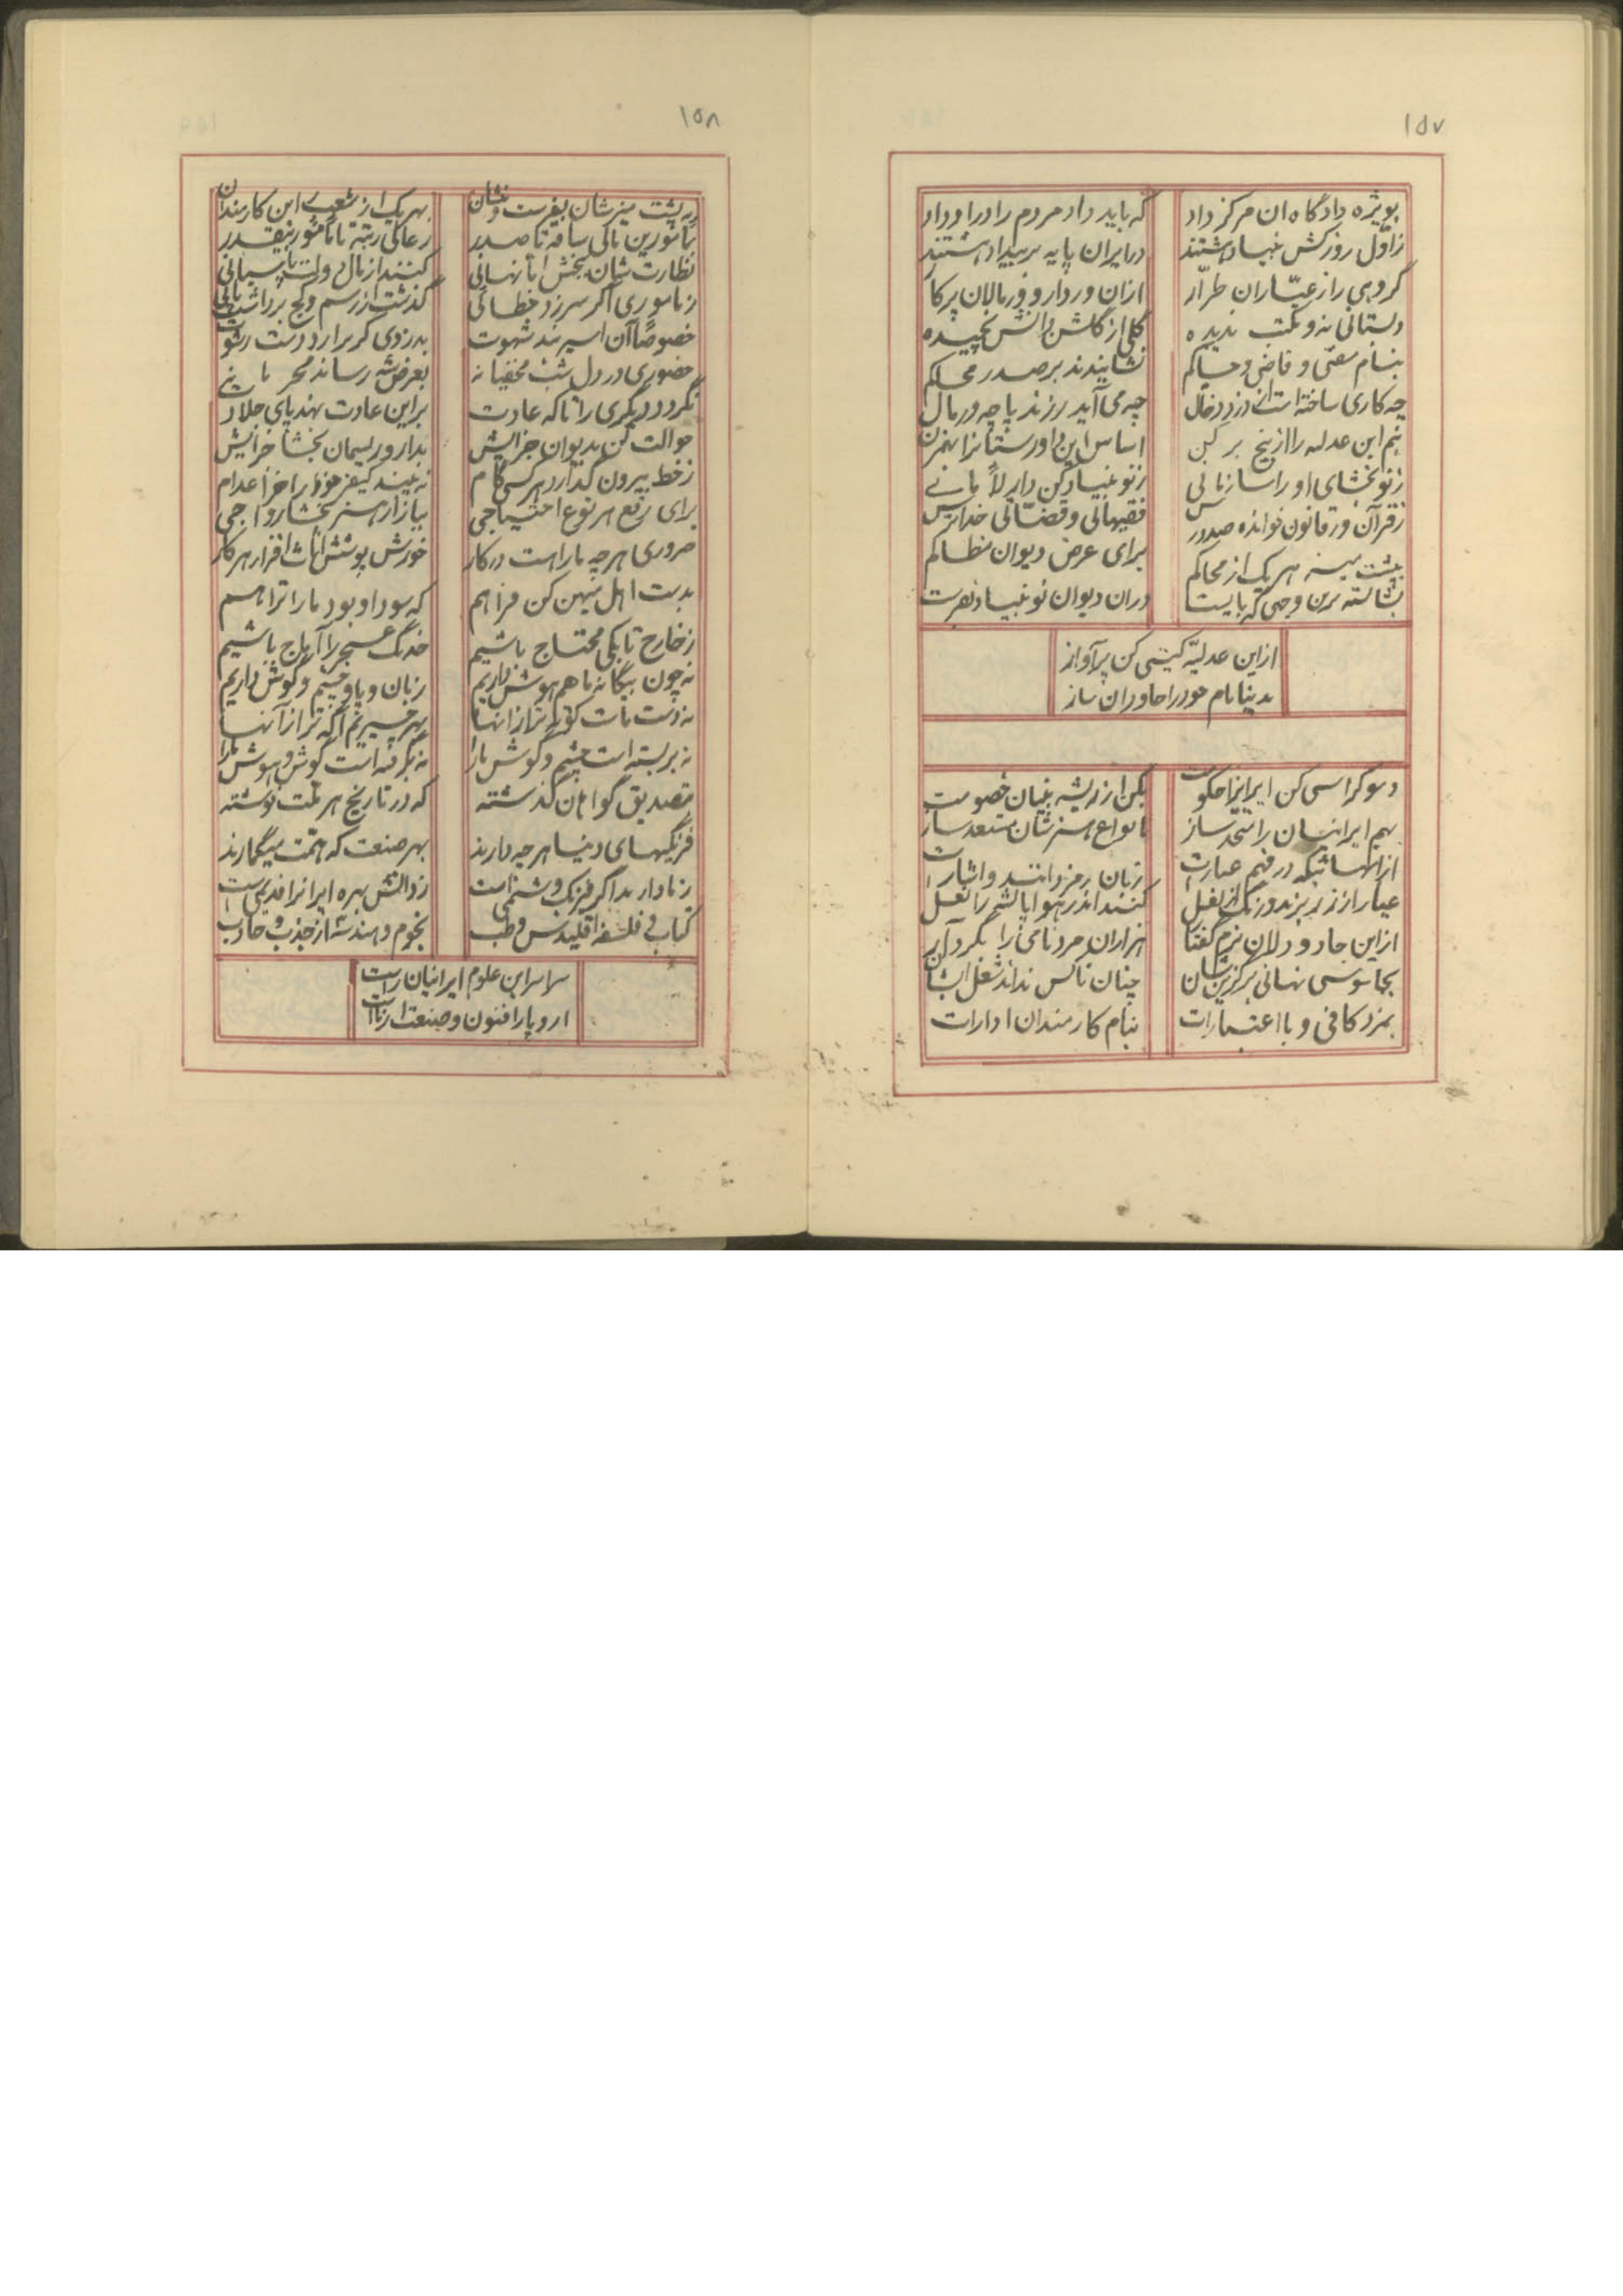 ۱۵۷
بویژه دادگاه ان مرکز داد
که باید داد مردم را در او داد
ز اول روز کش بنیاد هشتند
در ایران پایه بر بیداد هشتند
گروهی را ز عیّاران طرّار
ازان وردار و ورمالان پرکار
دبستانی نه و مکتب ندیده
گلی از گلشن دانش نچیده
بنام مفتی و قاضی و حاکم
نشانیدند بر صدر محاکم
چه کاری ساخته است از دزد دغال
چه می آید ز رند پاچه ورمال
این عدلیه را از بیخ بر کن
اساس این داورستانرا بهمزن
ز نو بخشای او را سازمانی
ز نو بنیاد کن دار لا مانی
ز قرآن و ز قانون خوانده صدور
فقیهانی و قضّاتی خداترس
بپشت میز هر یک از محاکم
برای عرض دیوان مظالم
بشایسته ترین وجهی که بایست
در ان دیوان نو بنیاد بفرست
ازاین عدلیّه گیتی کن پرآواز
بدینا نام خود را جاودان ساز
دموکراسی کن ایرانرا حکومت
بکن از ریشه بنیان خصومت
بهم ایرانیان را متّحد ساز
بانواع هنرشان مستعد ساز
ازانهائیکه در فهم عبارت
زبان رمز دانند و اشارت
عیار از زر برند و رنگ از لعل
کنند اندر هوا پا پشه را نعل
ازاین جادو دلان نرم گفتار
هزاران مرد نامی را بگرد آر
بجاسوسی نهانی برگزین شان
چنان ناکس نداند شغل ایشان
بمزد کافی و با اعتبارات
بنام کارمندان ادارات
۱۵۸
به پشت میزشان بفرست و بنشان
بهر یک از شعب این کارمندان
بمأمورین تا کی سافه تا صدر
نظارت شان ببخش امّا نهانی
کنند از مال دولت پاسبانی
ز ماموری اگر سرزد خطائی
خصوصًا آن اسیر بند شهوت
بدزدی گر برارد دست رشوت
حضوری در دل شب مخفیانه
بعرض شه رساند محرمانه
نگردد دیگری را تا که عادت
براین عادت نهد پای جلادت
حوالت کن بدیوان جزایش
بدار و ریسمان بخشا جزایش
ز خط بیرون گذارد هر کسی گام
نه بیند کیفر خود را جز اعدام
برای رفع هر نوع احتیاجی
ببازار هنر بخشا رواجی
ضروری هر چه ما راهست در کار
بدست اهل میهن کن فراهم
که سود او بود ما را ترا هم
ز خارج تا بکی محتاج باشیم
خدنگ عجز را آماج باشیم
نه چون بیگانه ما هم هوش داریم
زبان و پا و چشم و گوش داریم
نه دست ماست کوته تر از انها
بهر چیزیم آگه تر از آنها
نه بر بسته است چشم و گوش ما را
نه بگرفته است گوش و هوش ما را
بتصدیق گواهان گذشته
که در تاریخ هر ملّت نوشته
فرنگیهای دنیا هر چه دارند
بهر صنعت که همّت میگمارند
زدانش بهره ایرانرا قدیمی است
کتاب فلسفه اقلیدس و طب
نجوم و هندسه از جذب و جاذب
سراسر این علوم ایرانیان راست
اروپا را فنون و صنعت آراست